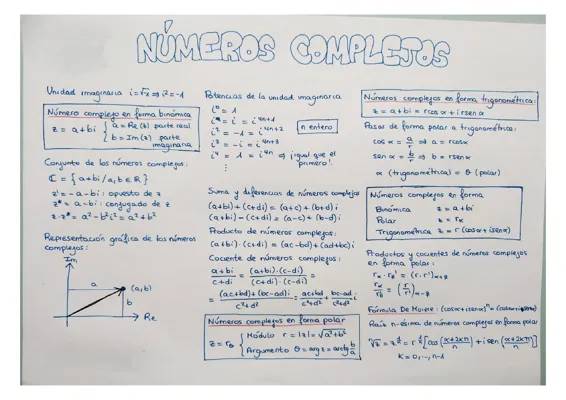 NÚMEROS COMPLEJOS
Unidad imaginaria i=√-1 ⇒ i²=-1
Número complejo en forma binómica
z = a+bi { a = Re(z) parte real
b = Im(z) parte
imaginaria
Conjunto de los números complejos:
ℂ = { a+bi / a,b ∈ ℝ }
z' = -a-bi : opuesto de z
z* = a-bi : conjugado de z
z·z* = a²-b²i² = a²+b²
Representación gráfica de los números
complejos:
Im
a
(a,b)
b
Re
Potencias de la unidad imaginaria
i⁰ = 1
i² = -1 = i⁴ⁿ⁺²
n entero
i³ = -i = i⁴ⁿ⁺³
i⁴ = 1 = i⁴ⁿ ⇒ ¡igual que el
primero!
Suma y diferencias de números complejos
(a+bi)+(c+di) = (a+c)+(b+d)i
(a+bi)-(c+di) = (a-c)+(b-d)i
Producto de números complejos:
(a+bi)·(c+di) = (ac-bd)+(ad+bc)i
Cociente de números complejos:
(a+bi)/(c+di) = (a+bi)·(c-di)/(c+di)·(c-di) =
= (ac+bd)+(bc-ad)i/c²+d² = ac+bd/c²+d² + bc-ad/c²+d² i
Números complejos en forma polar
z = rθ { Módulo r = |z| = √a²+b²
Argumento θ = arg z = arctg b/a
Números complejos en forma trigonométrica:
z = a+bi = r cos α + i r sen α
Pasar de forma polar a trigonométrica:
cos α = a/r ⇒ a = r cos α
sen α = b/r ⇒ b = r sen α
α (trigonométrica) = θ (polar)
Números complejos en forma
Binómica z = a+bi
Polar z = rα
Trigonométrica z = r (cos α + i sen α)
Productos y cocientes de números complejos
en forma polar:
rα · r'β = (r·r')α+β
rα/r'β = (r/r')α-β
Fórmula De Moivre: (cos α + i sen α)ⁿ =
Raíz n-ésima de números complejos en forma polar
[cos (α+2kπ/n) + i sen (α+2kπ/n)]
K = 0,..., n-1